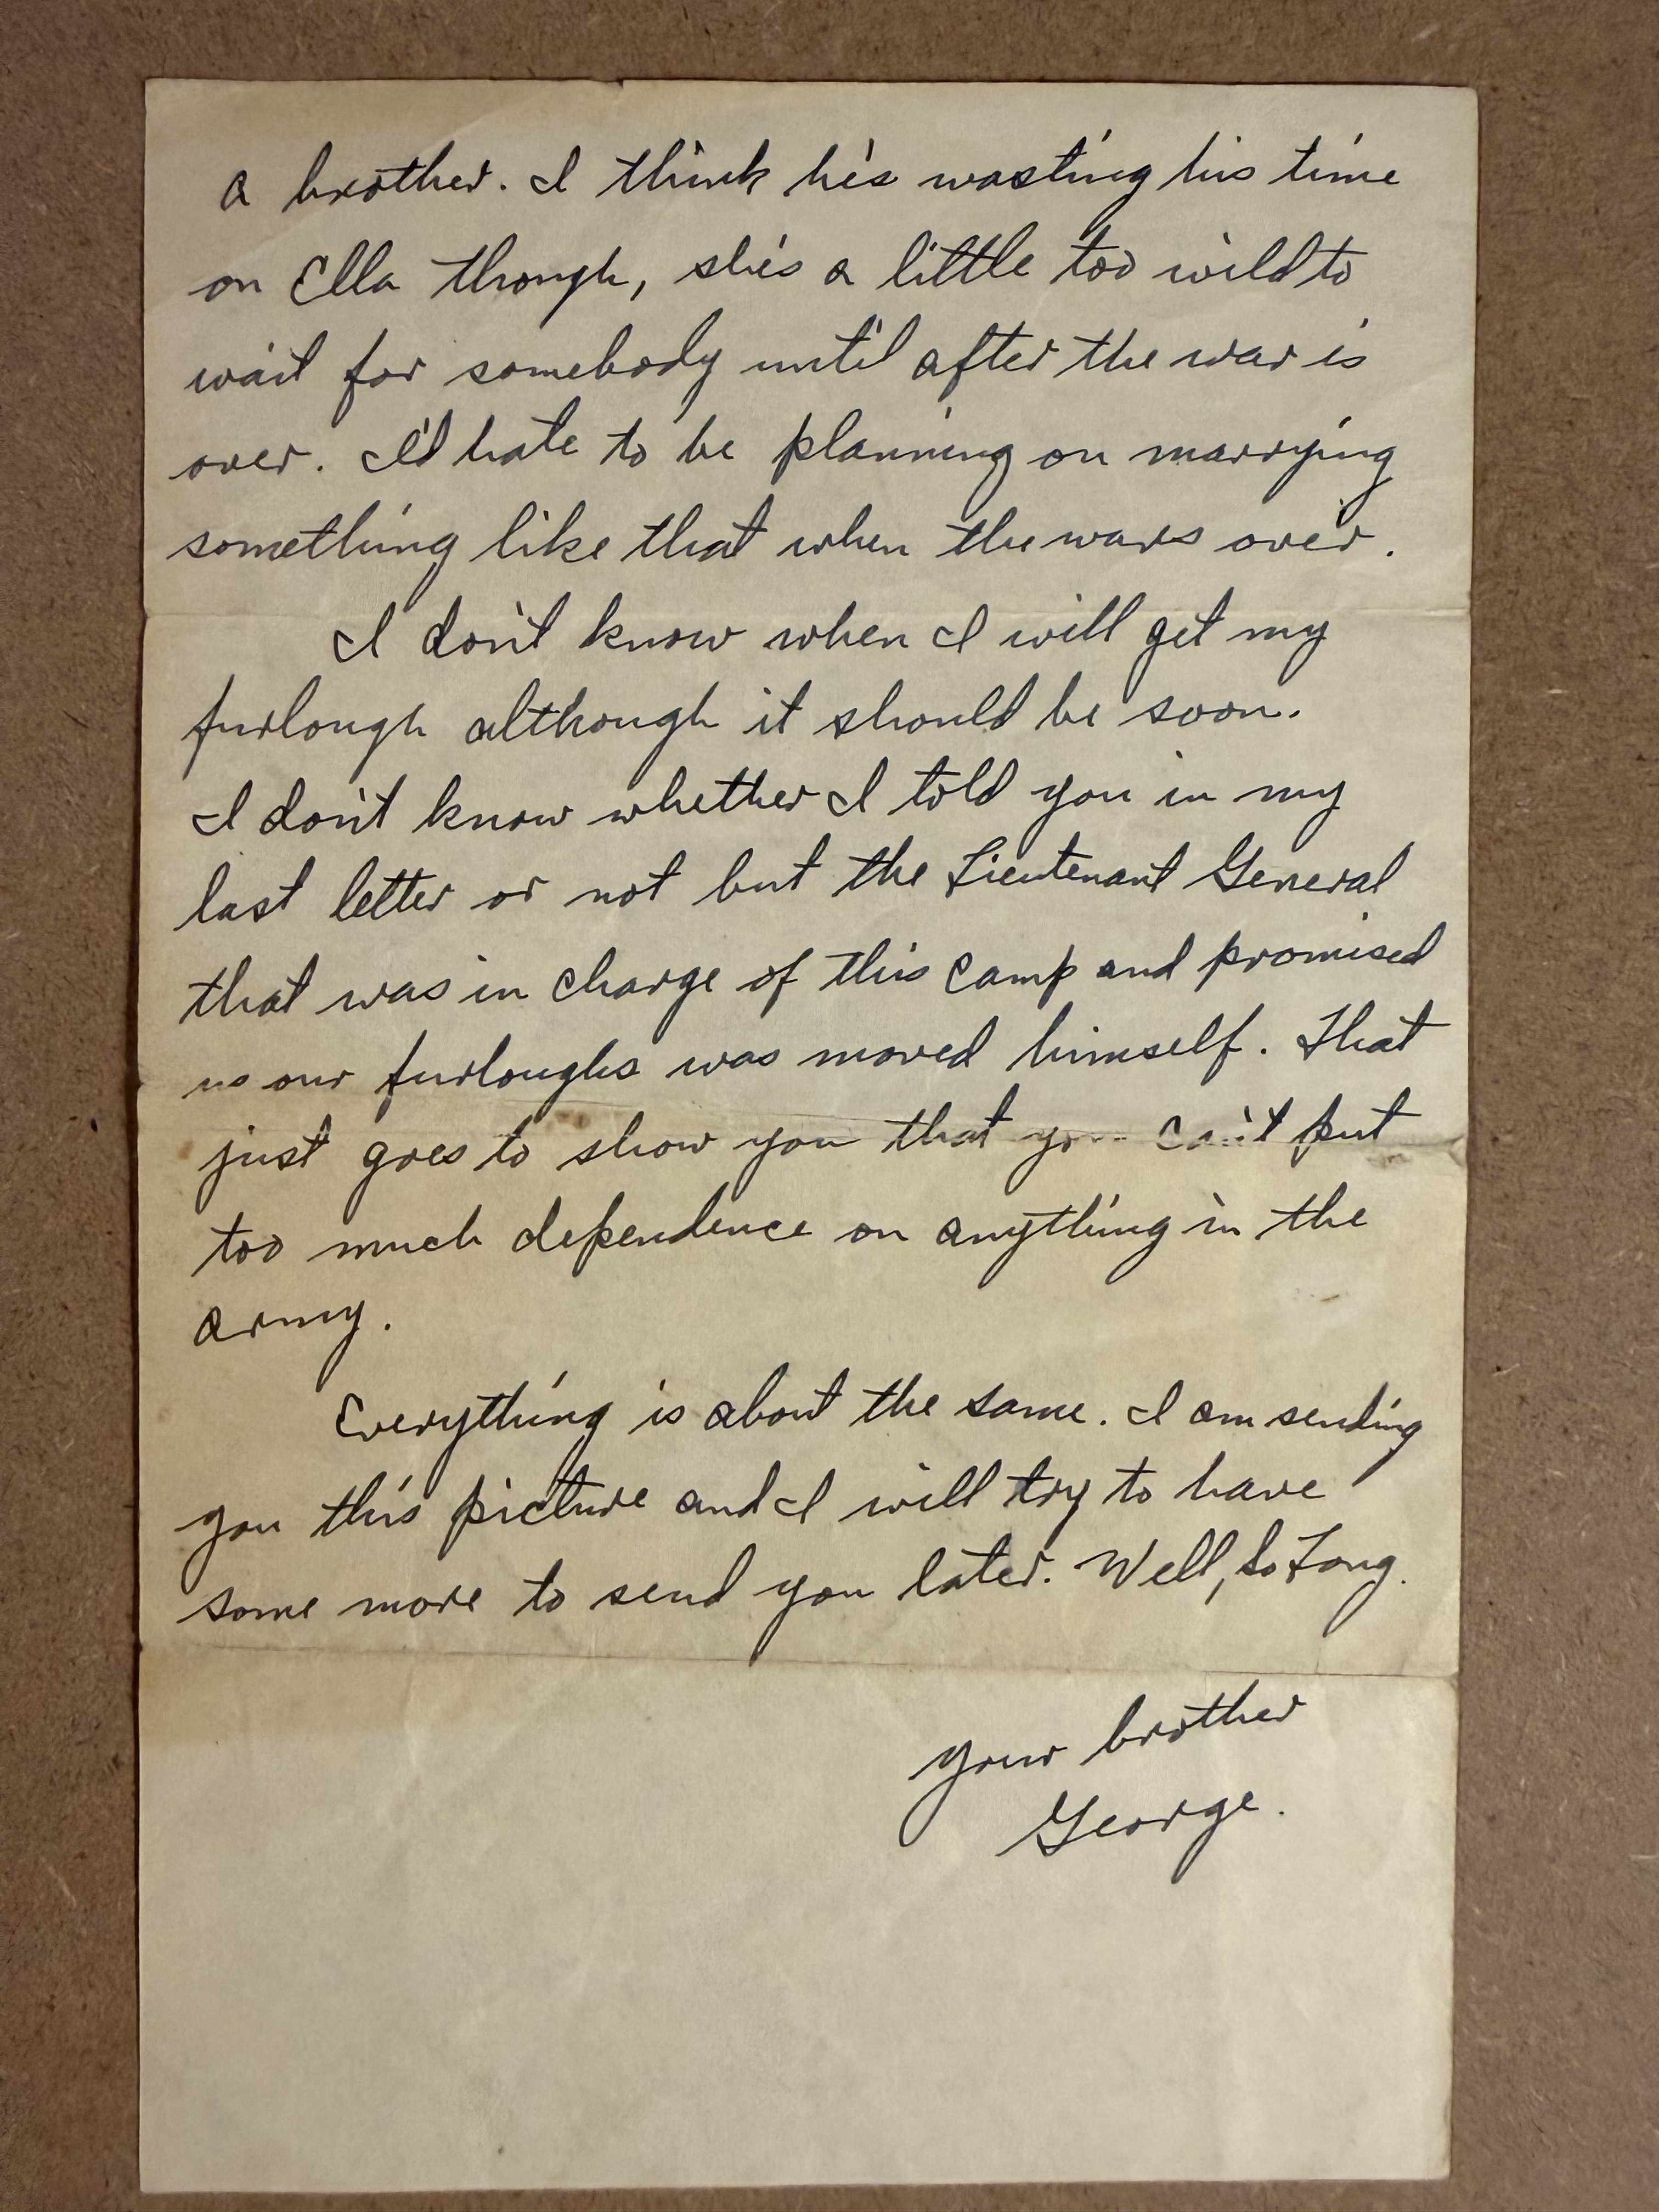 a brother. I think he's wasting his time
on Ella though, she's a little too wild to
wait for somebody until after the war is
over. I'd hate to be planning on marrying
something like that when the wars over.
I don't know when I will get my
furlough although it should be soon.
I don't know whether I told you in my
last letter or not but the Lieutenant General
that was in charge of this camp and promised
us our furloughs was moved himself. That
just goes to show you that you can't put
too much dependence on anything in the
army.
Everything is about the same. I am sending
you this picture and I will try to have
some more to send you later. Well, So Long.
your brother
George.